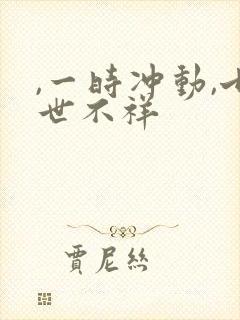 ,一時冲動,七
世不祥
賈尼絲